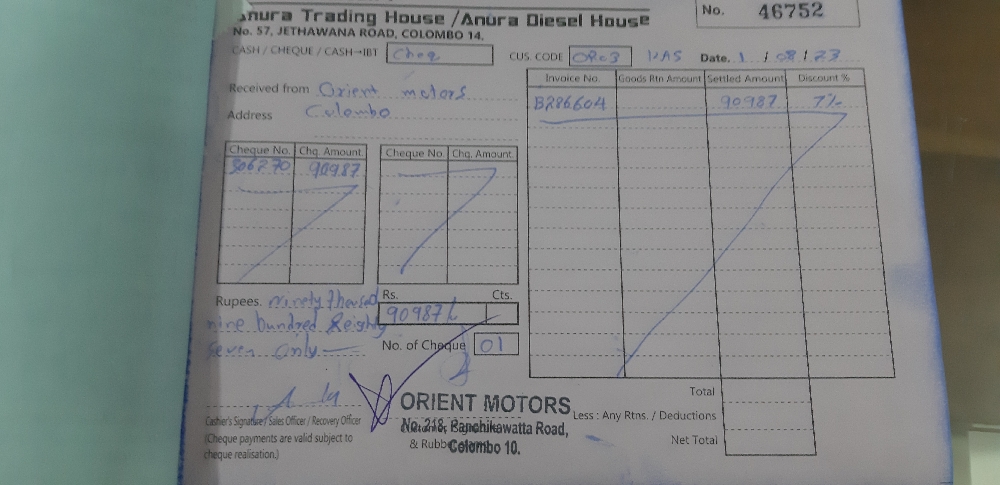 Anura Trading House / Anura Diesel House
No. 57, JETHAWANA ROAD, COLOMBO 14.
No. 46752
CASH / CHEQUE / CASH-IBT Cheq
CUS CODE OR03
Date. 1 / 08 / 23
Received from Orient motors
Address Colombo
Invoice No. Goods Rtn Amount Settled Amount Discount %
B286604 90987 7%
Cheque No. Chq. Amount Cheque No. Chq. Amount
90987
Rupees. ninety thousad
nine hundred & eighty
seven only
Rs. Cts.
90987/
No. of Cheque 01
Cashier's Signature / Sales Officer / Recovery Officer
(Cheque payments are valid subject to
cheque realisation.)
ORIENT MOTORS
No. 218, Panchikawatta Road,
Colombo 10.
& Rubber
Total
Less : Any Rtns. / Deductions
Net Total